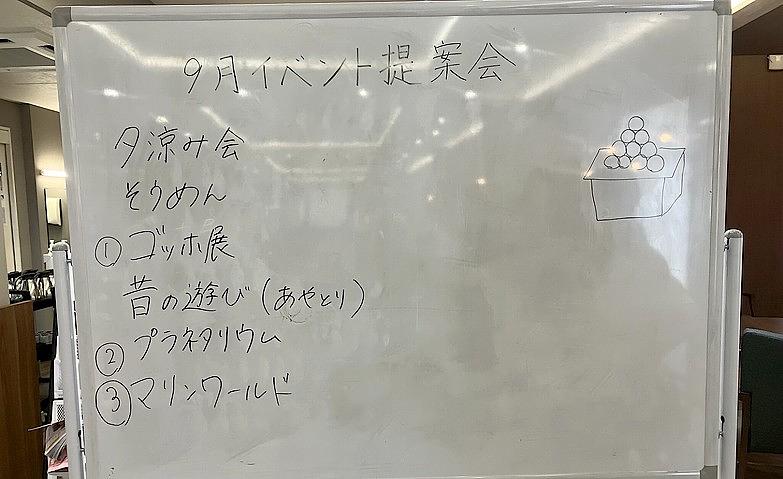 9月イベント提案会
夕涼み会
そうめん
①ゴッホ展
昔の遊び(あやとり)
②プラネタリウム
③マリンワールド